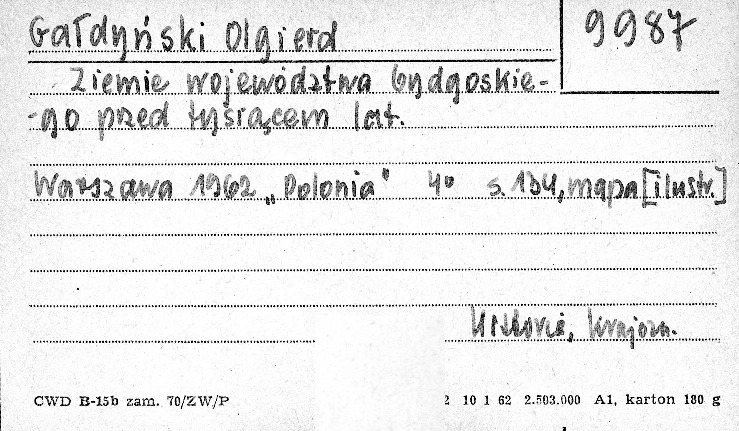 Gałdyński Olgierd
9987
Ziemie województwa bydgoskie-
-go przed tysiącem lat.
Warszawa 1962 „Polonia" 4° s. 134, mapa [ilustr.]
Historia, krajozn.
CWD B-15b zam. 70/ZW/P
2 10 1 62 2.503.000 A1, karton 180 g